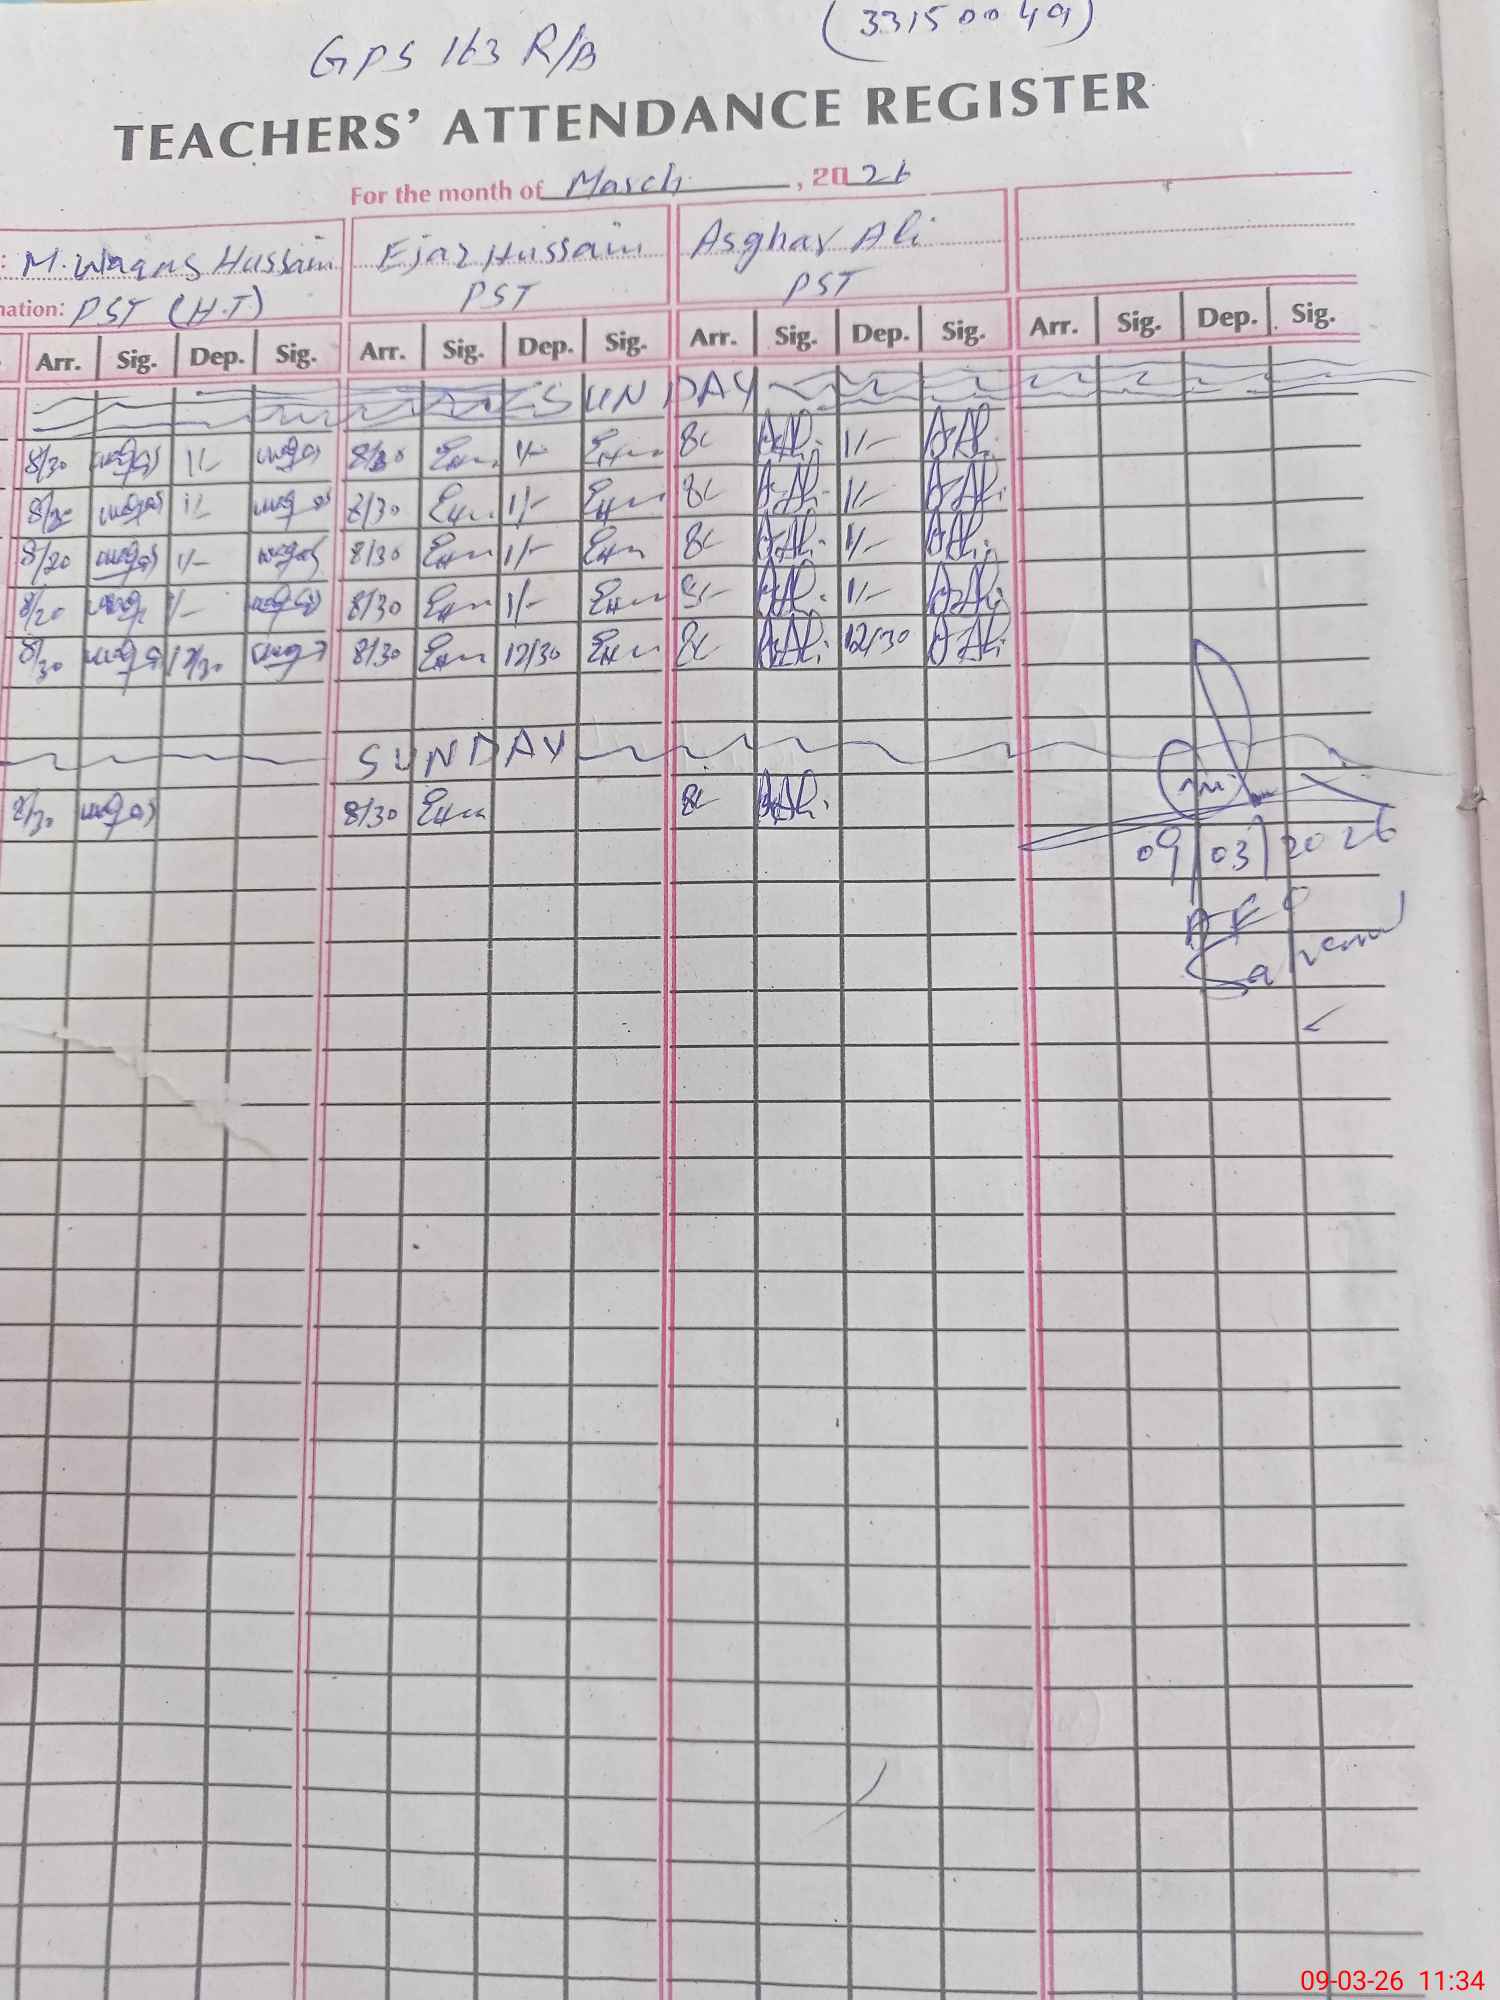 GPS 163 R/B (33150049)
TEACHERS' ATTENDANCE REGISTER
For the month of March, 2026
: M. Waqas Hussain Ejaz Hussain Asghar Ali
nation: PST (H.T) PST PST
Arr. Sig. Dep. Sig. Arr. Sig. Dep. Sig. Arr. Sig. Dep. Sig. Arr. Sig. Dep. Sig.
SUNDAY
8/30 1/- 8/30 1/- 8/- A.Ali 1/- A.Ali
8/30 1/- 8/30 1/- 8/- A.Ali 1/- A.Ali
8/20 1/- 8/30 1/- 8/- A.Ali 1/- A.Ali
8/20 1/- 8/30 1/- 8/- A.Ali 1/- A.Ali
8/30 12/30 8/30 12/30 8/- A.Ali 12/30 A.Ali
SUNDAY
8/30 8/30 8/- A.Ali
09/03/2026
AEO
09-03-26 11:34